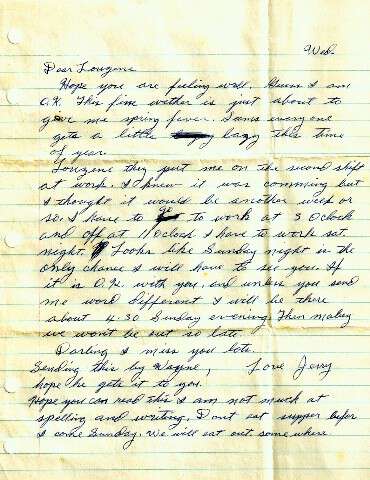 Wed.
Dear Lougene
Hope you are feeling well. Guess I am
O.K. This fine wether is just about to
give me spring fever. Seems everyone
gets a little lazy this time
of year.
Lougene they put me on the second shift
at work. I knew it was comming but
I thought it would be another week or
so. I have to go to work at 3 OClock
and off at 11 OClock I have to work sat.
night. Looks like Sunday night is the
only chance I will have to see you. If
it is O.K. with you, and unless you send
me word different I will be there
about 4:30 Sunday evening. Then maby
we wont be out so late.
Darling I miss you lots.
Sending this by Wayne, Love Jerry
hope he gets it to you.
Hope you can read this I am not much at
spelling and writing. Dont eat supper befor
I come Sunday. We will eat out some where